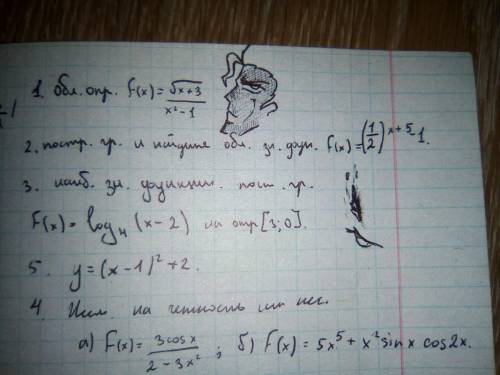 1. обл. опр. f(x) = √x+3 / x²-1
2. постр. гр. и найдите обл. зн. функ. f(x) = (1/2)^x+5 -1.
3. наиб. зн. функции. пост. гр.
F(x) = log₄ (x-2) на отр [3; 0].
5. y = (x-1)² + 2.
4. на четность нес.
а) F(x) = 3cosx / 2-3x² ; б) f(x) = 5x⁵ + x² sin x cos2x.